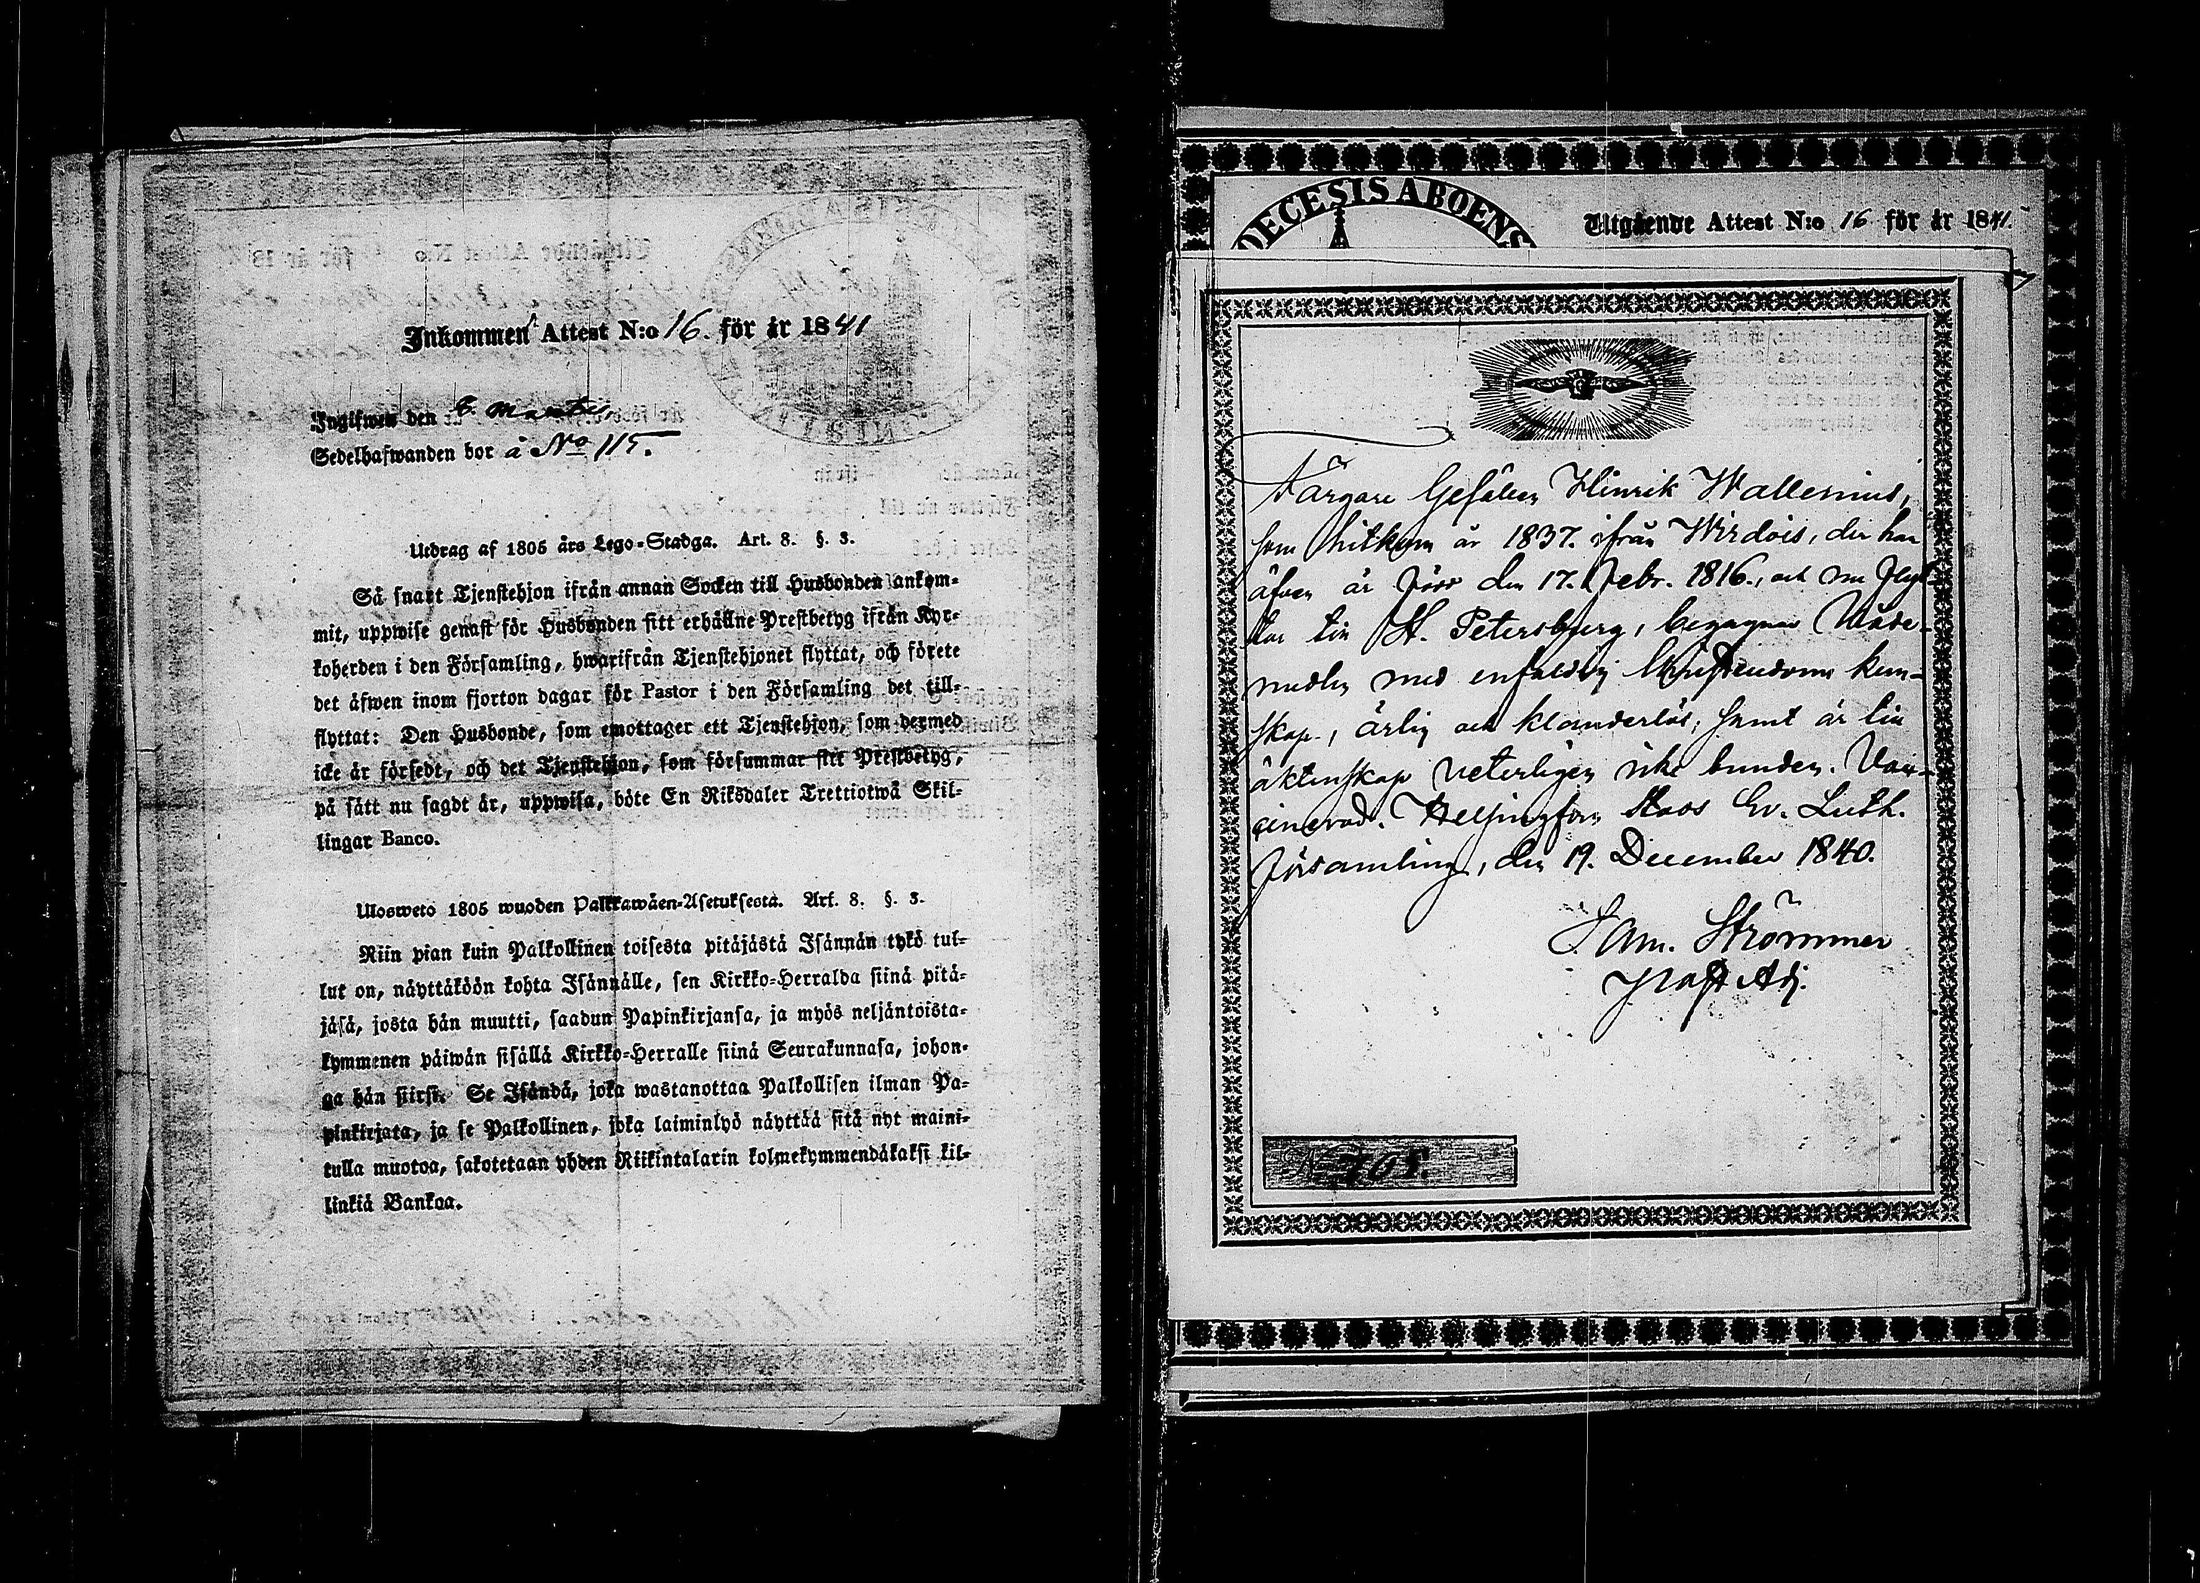 Inkommen Attest N:o 16. för år 1841
Ingifwen den 6. Martii
Sedelhafwanden bor å No 115.
Utdrag af 1805 års Lego-Stadga. Art. 8. §. 3.
Så snart Tjenstehjon ifrån annan Socken till Husbonden ankom-
mit, uppwise genast för Husbonden sitt erhållne Prestbetyg ifrån Kyr-
koherden i den Församling, hwarifrån Tjenstehjonet flyttat, och förete
det äfwen inom fjorton dagar för Pastor i den Församling det till-
flyttat: Den Husbonde, som emottager ett Tjenstehjon, som dermed
icke är försedt, och det Tjenstehjon, som försummar sitt Prestbetyg,
på sätt nu sagdt är, uppwisa, böte En Riksdaler Trettiotwå Skil-
lingar Banco.
Ulosweto 1805 wuoden Palkkawäen-Asetuksesta. Art. 8. §. 3.
Niin pian kuin Palkollinen toisesta pitäjästä Isännän tykö tul-
lut on, näyttäköön kohta Isännälle, sen Kirkko-Herralda siinä pitä-
jäsä, josta hän muutti, saadun Papinkirjansa, ja myös neljäntoista-
kymmenen päiwän sisällä Kirkko-Herralle siinä Seurakunnasa, johon-
ga hän siirsi. Se Isändä, joka wastanottaa Palkollisen ilman Pa-
pinkirjata, ja se Palkollinen, joka laiminlyö näyttää sitä nyt maini-
tulla muotoa, sakotetaan yhden Riikintalarin kolmekymmendäkaksi kil-
linkiä Bankoa.
DECESIS ABOENS
Utgående Attest N:o 16 för år 1841.
Färgare Gesällen Hinrik Wallenius,
som hitkom år 1837. ifrån Wirdois, der han
äfven är född den 17. Febr. 1816., och nu flyt-
tar till St. Petersburg, begagnar Nåde-
medlen med enfaldig Christendoms kun-
skap, ärlig och klanderlös, samt är till
äktenskap veterligen icke bunden. Vac-
cinerad. Helsingfors Stads Ev. Luth.
Församling, den 19. December 1840.
Sam. Strömmer
Past Adj.